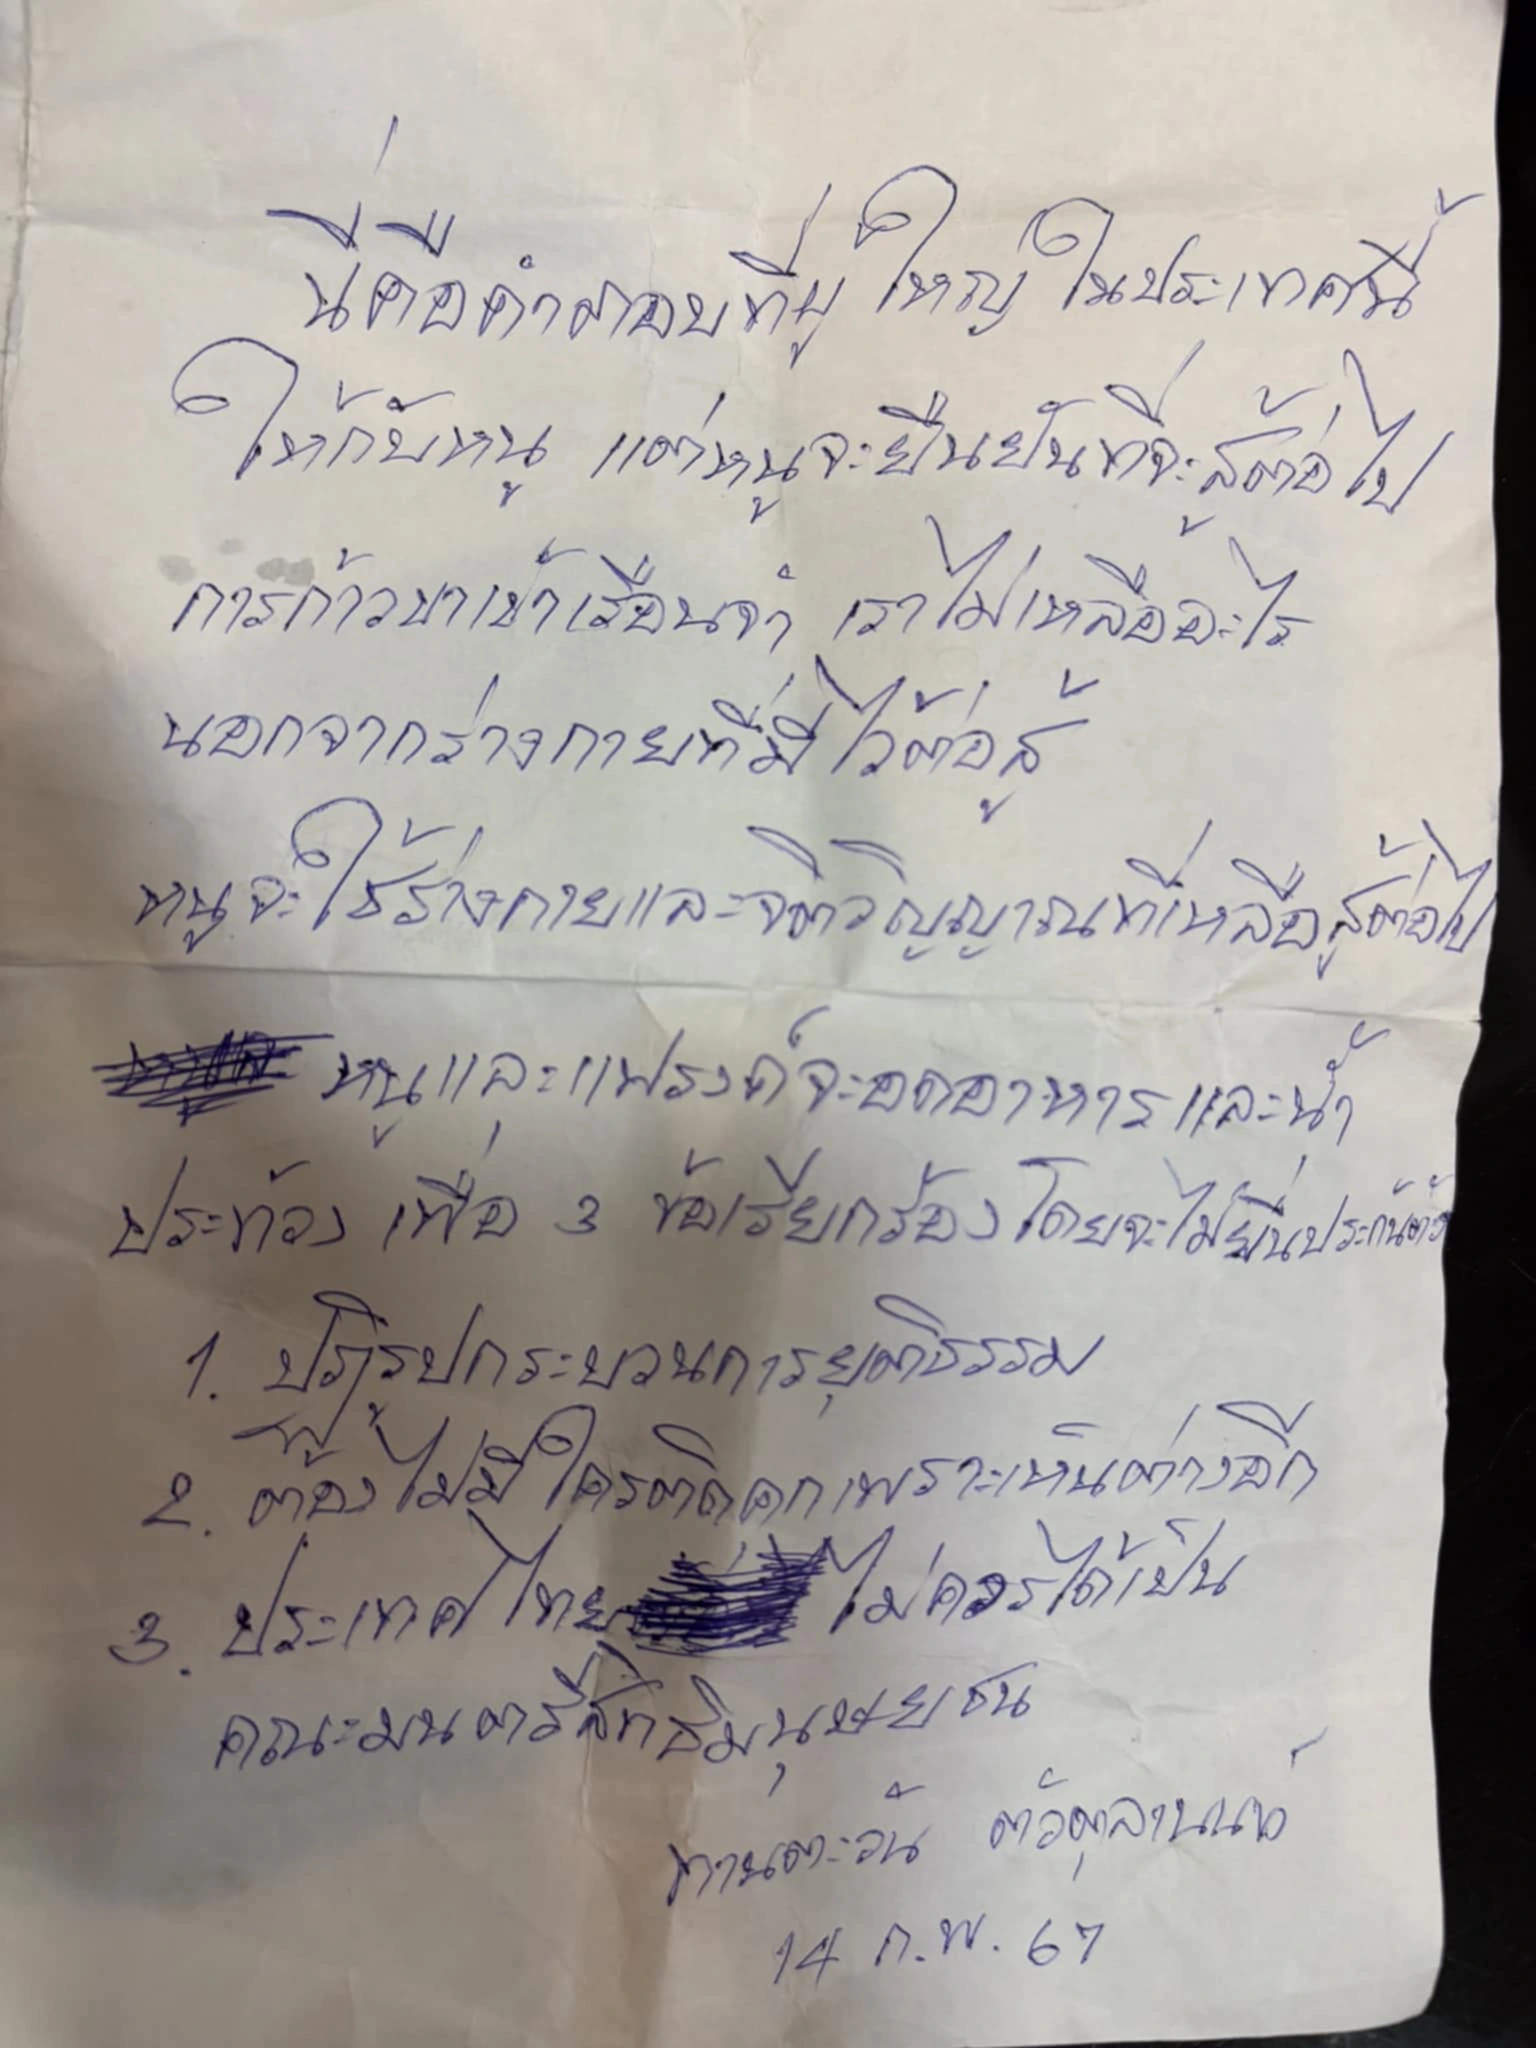 นี่คือคำตอบที่ผู้ใหญ่ในประเทศนี้
ให้กับหนู แต่หนูจะยืนยันที่จะสู้ต่อไป
การก้าวขาเข้าเรือนจำ เราไม่เหลืออะไร
นอกจากร่างกายที่มีไว้ต่อสู้
หนูจะใช้ร่างกายและจิตวิญญาณที่เหลือสู้ต่อไป
หนูและแฟรงค์จะอดอาหารและน้ำ
ประท้วง เพื่อ 3 ข้อเรียกร้องโดยจะไม่ยื่นประกันตัว
1. ปฏิรูปกระบวนการยุติธรรม
2. ต้องไม่มีใครติดคุกเพราะเห็นต่างอีก
3. ประเทศไทย ไม่ควรได้เป็น
คณะมนตรีสิทธิมนุษยชน
ทานตะวัน ตัวตุลานนท์
14 ก.พ. 67